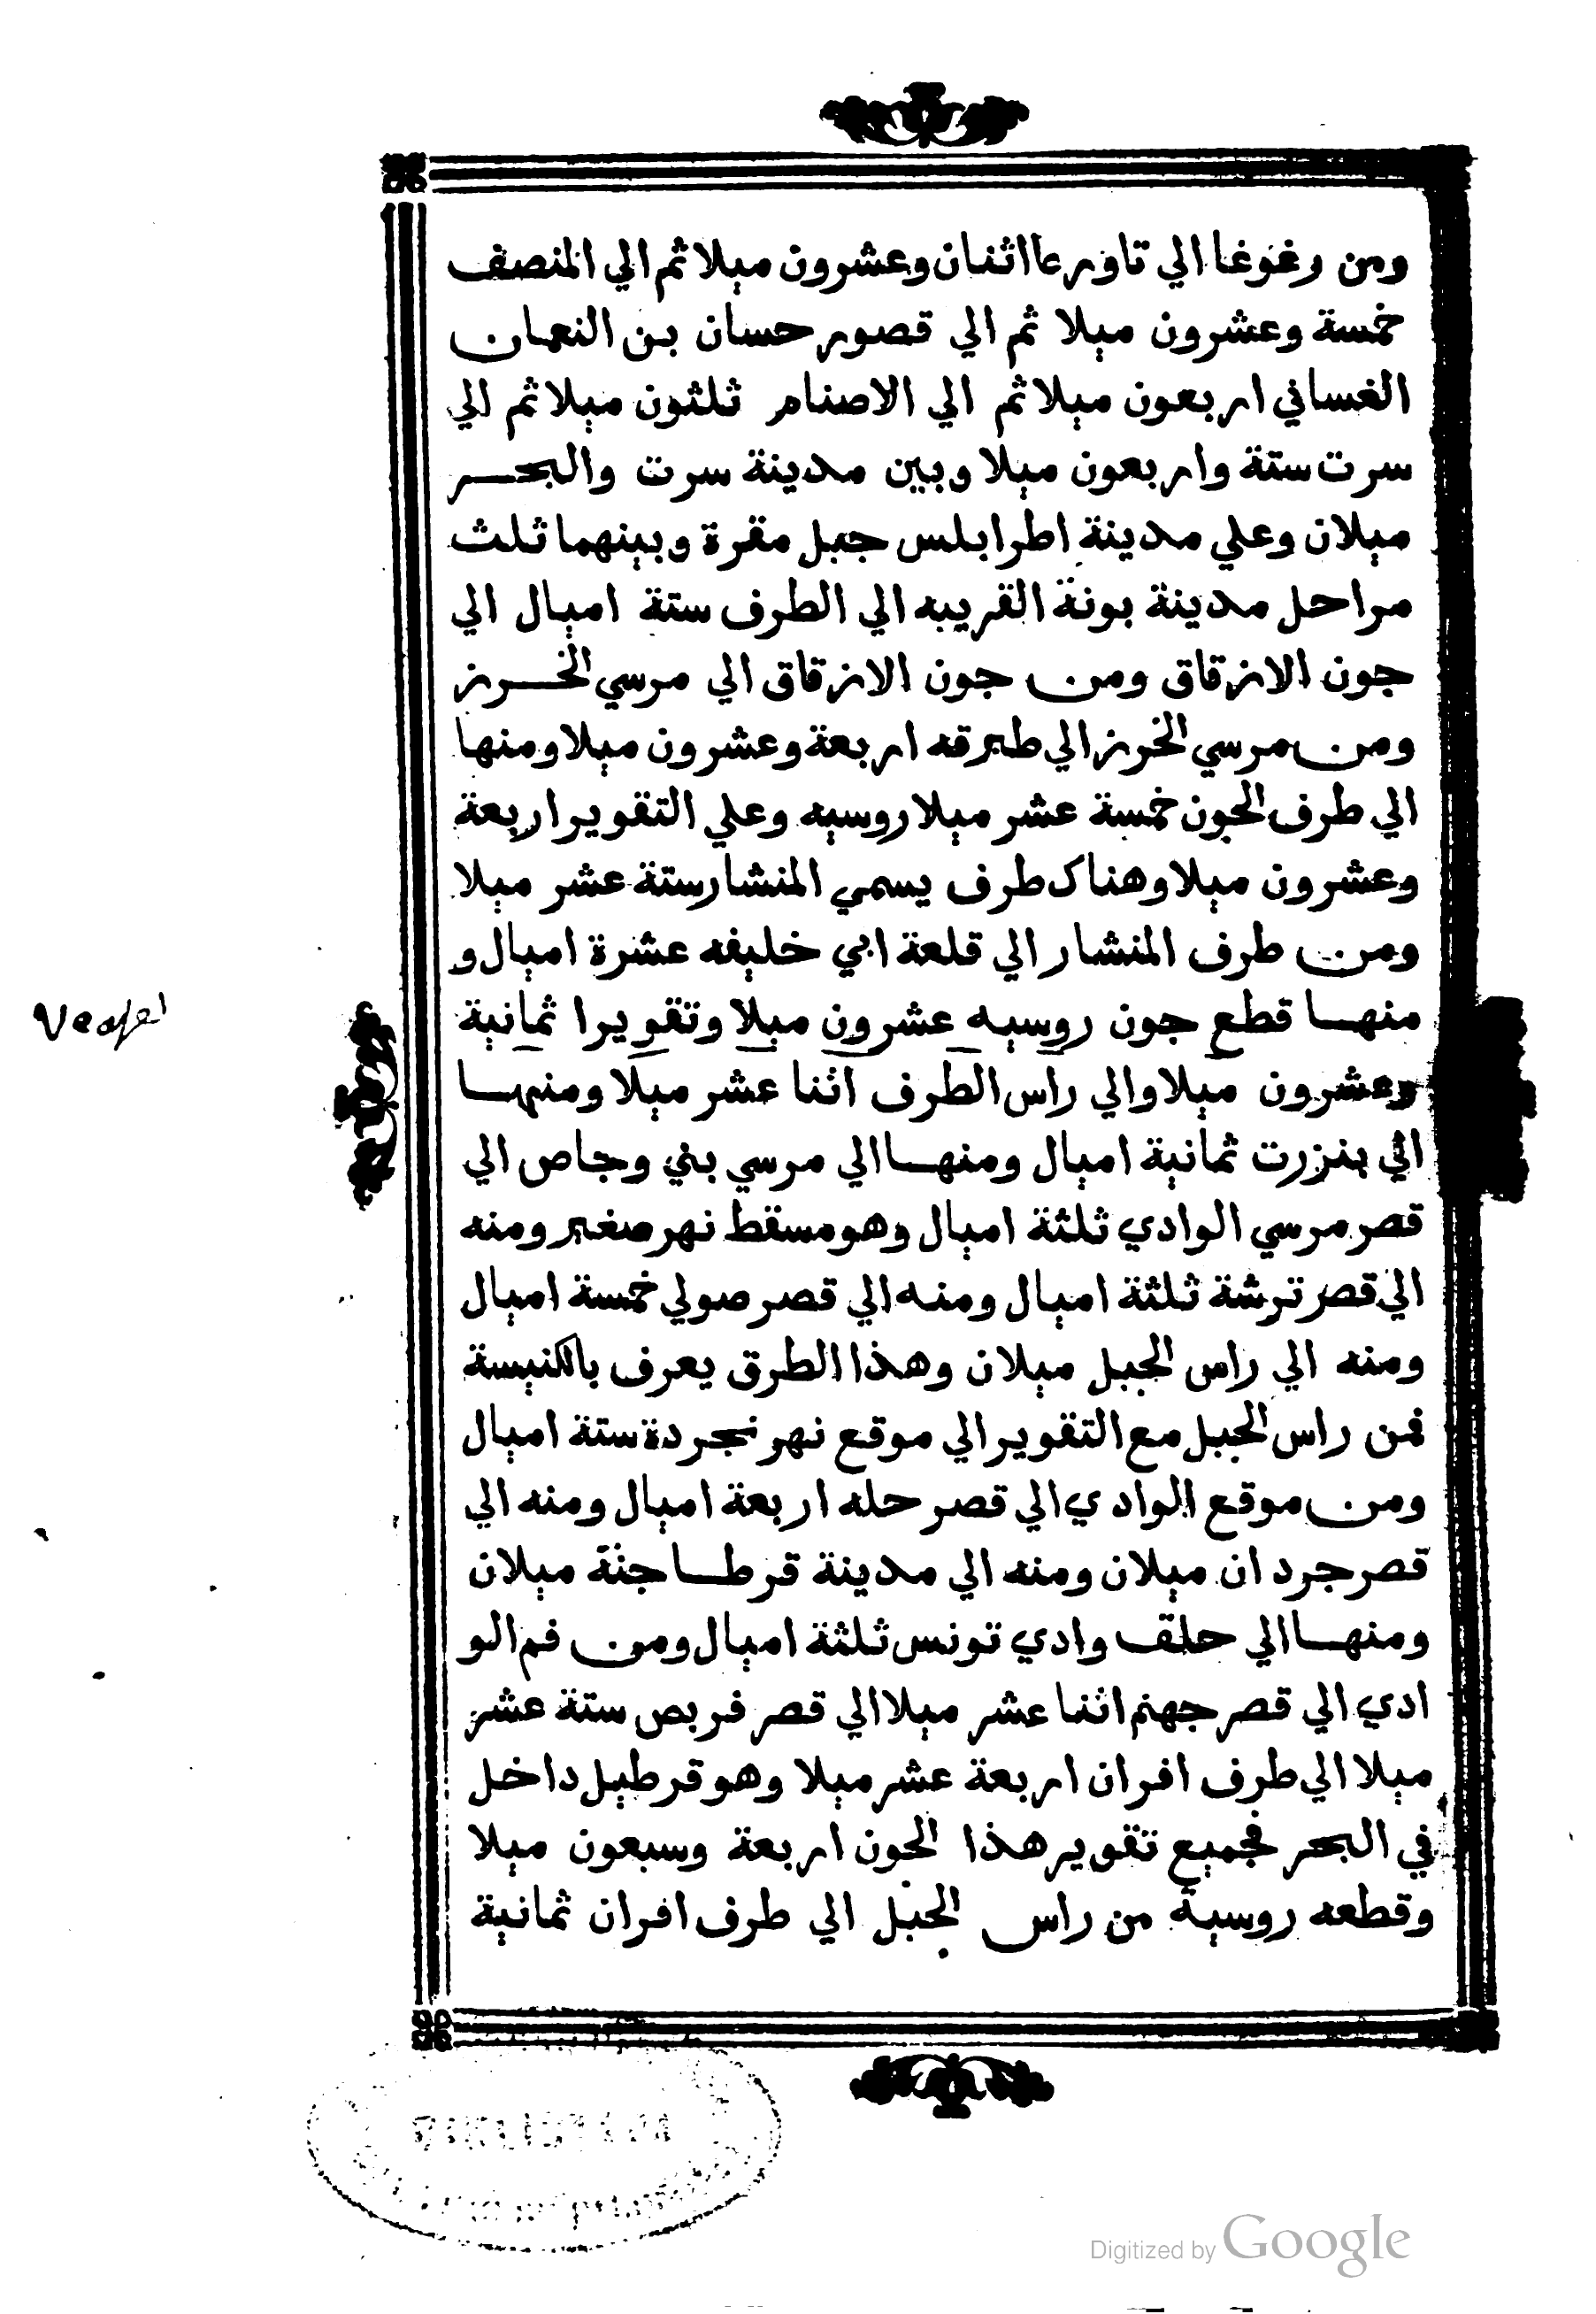 ومن رغوغا الي تاورعا اثنان وعشرون ميلا ثم الي المنصف
خمسة وعشرون ميلا ثم الي قصور حسان بن النعمان
الغساني اربعون ميلا ثم الي الاصنام ثلثون ميلا ثم الي
سرت ستة واربعون ميلا وبين مدينة سرت والبحر
ميلان وعلي مدينة اطرابلس جبل مقرة وبينهما ثلث
مراحل مدينة بونة القريبه الي الطرف ستة اميال الي
جون الازقاق ومن جون الازقاق الي مرسي الخرز
ومن مرسي الخرز الي طبرقه اربعة وعشرون ميلا ومنها
الي طرف الجون خمسة عشر ميلا روسيه وعلي التقوير اربعة
وعشرون ميلا وهناك طرف يسمي المنشار ستة عشر ميلا
ومن طرف المنشار الي قلعة ابي خليفه عشرة اميال و
منها قطع جون روسيه عشرون ميلا وتقويرا ثمانية
وعشرون ميلا والي راس الطرف اثنا عشر ميلا ومنها
الي بنزرت ثمانية اميال ومنها الي مرسي بني وجاص الي
قصر مرسي الوادي ثلثة اميال وهو مسقط نهر صغير ومنه
الي قصر ترشة ثلثة اميال ومنه الي قصر صولي خمسة اميال
ومنه الي راس الجبل ميلان وهذا الطرق يعرف بالكنيسة
فمن راس الجبل مع التقوير الي موقع نهر نجردة ستة اميال
ومن موقع الوادي الي قصر حله اربعة اميال ومنه الي
قصر جردان ميلان ومنه الي مدينة قرطاجنة ميلان
ومنها الي حلق وادي تونس ثلثة اميال ومن فم الو
ادي الي قصر جهنم اثنا عشر ميلا الي قصر فربص ستة عشر
ميلا الي طرف افران اربعة عشر ميلا وهو قرطيل داخل
في البحر فجميع تقوير هذا الجون اربعة وسبعون ميلا
وقطعه روسية من راس الجبل الي طرف افران ثمانية
Digitized by Google